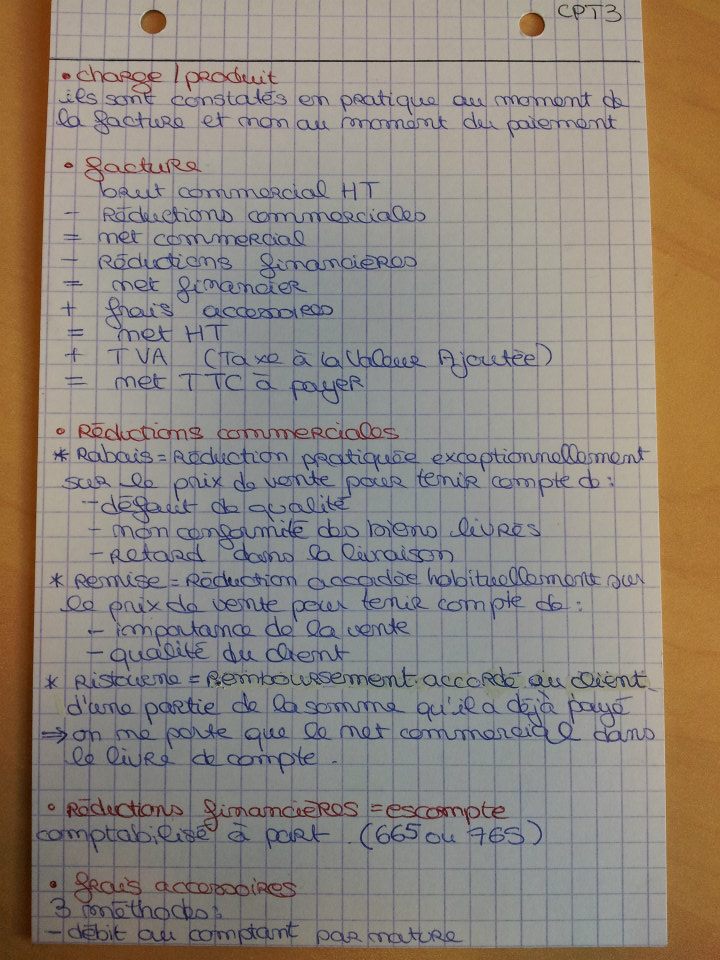 CPT3
• charge / produit
ils sont constatés en pratique au moment de
la facture et non au moment du paiement
• facture
brut commercial HT
- Réductions commerciales
= net commercial
- Réductions financières
= net financier
+ frais accessoires
= net HT
+ TVA (Taxe à la Valeur Ajoutée)
= net TTC à payer
• Réductions commerciales
* Rabais = Réduction pratiquée exceptionnellement
sur le prix de vente pour tenir compte de :
- défaut de qualité
- non conformité des biens livrés
- retard dans la livraison
* Remise = Réduction accordée habituellement sur
le prix de vente pour tenir compte de :
- importance de la vente
- qualité du client
* Ristourne = Remboursement accordé au client
d'une partie de la somme qu'il a déjà payé
⇒ on ne porte que le net commercial dans
le livre de compte.
• Réductions financières = escompte
comptabilisé à part. (665 ou 765)
• frais accessoires
3 méthodes :
- débit au comptant par nature